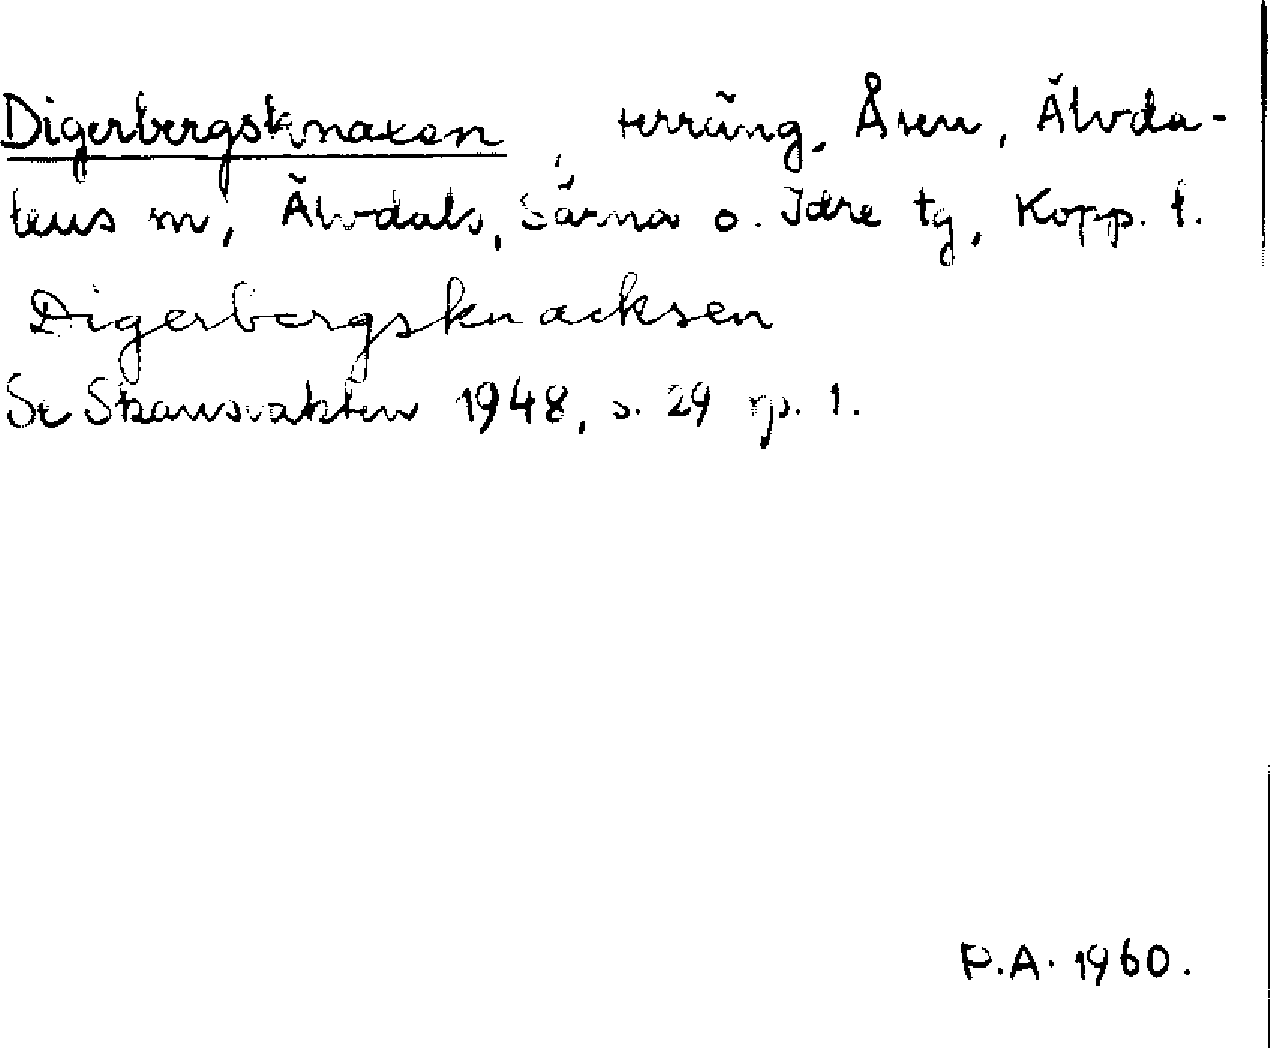 Digerbergsknaxen, terräng, Åsen, Älvda-
lens sn, Älvdals, Särna o. Idre tg, Kopp. l.
Digerbergsknacksen
Se Skansvakten 1948, s. 29 sp. 1.
P.A. 1960.